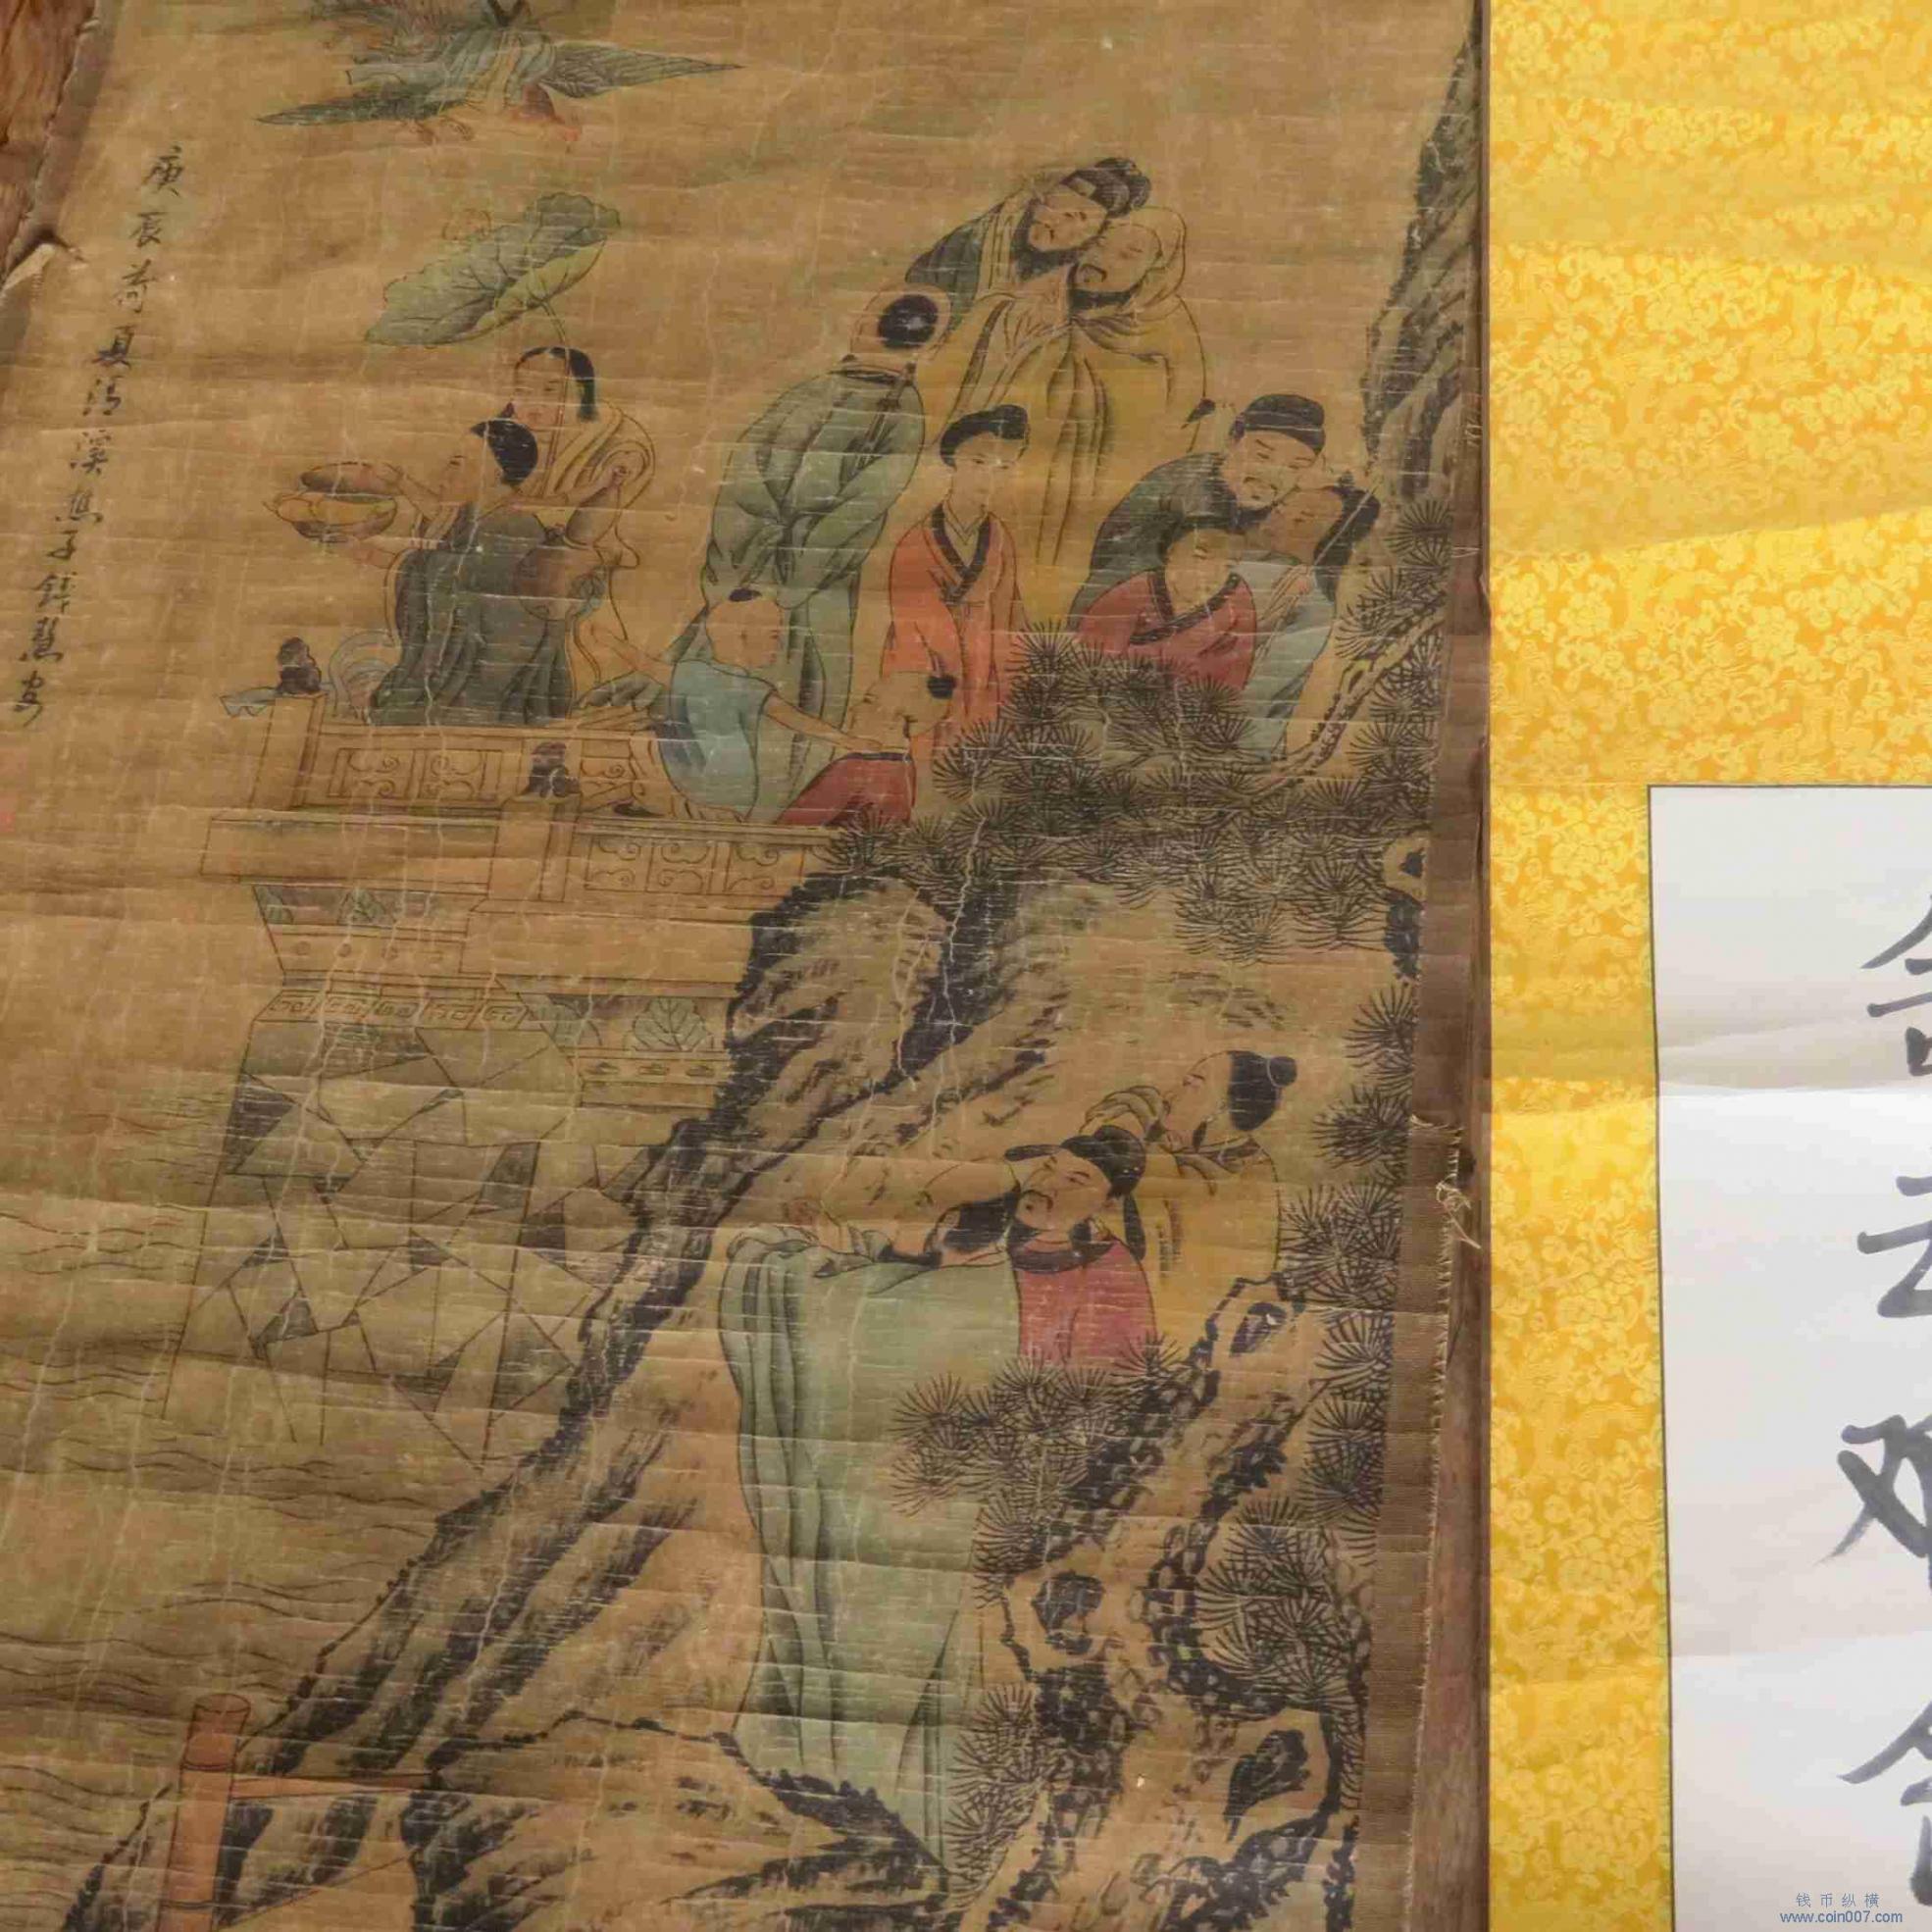 庚辰荷夏清溪樵子錢慧安
钱币纵横
www.coin007.com